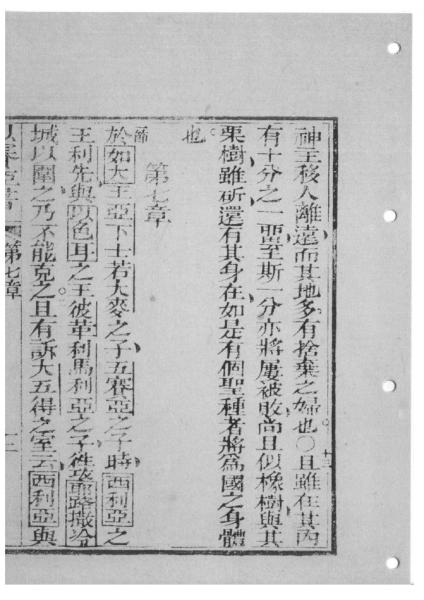 神主移人離遠而其地多有捨棄之婦也〇十三且雖在其內
有十分之一至斯一分亦將屢被敗尚且似橡樹與其
栗樹雖斫還有其身在如是有個聖種者將為國之身體
也
第七章
節
於如大王亞下士若大麥之子五賽亞之子時西利亞之
王利先與以色耳之王彼革利馬利亞之子徃攻耶路撒冷
城以圍之乃不能克之且有訴大五得之室云西利亞與
第七章